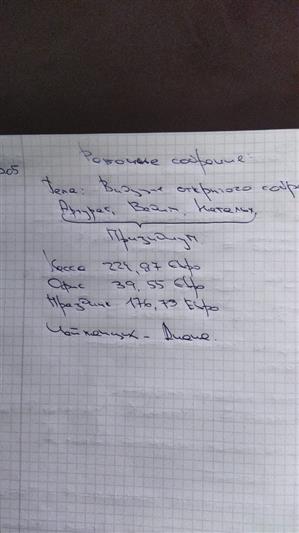 05
Рабочее собрание:
Тема: Ведущие открытого собра
Андрас, Вадим, Наталья,
Президиум
Касса 221,87 Евро
Офис 39,55 Евро
Праздник 176,73 Евро
Диана.